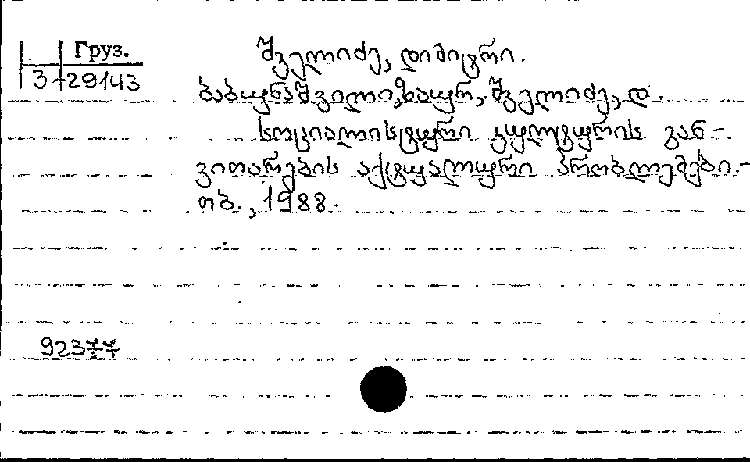 Груз.
3-29143
შველიძე, დიმიტრი.
ბაბუნაშვილი, ზაურ, შველიძე, დ.
სოციალისტური კულტურის გან-
ვითარების აქტუალური პრობლემები.-
თბ., 1988.
92377